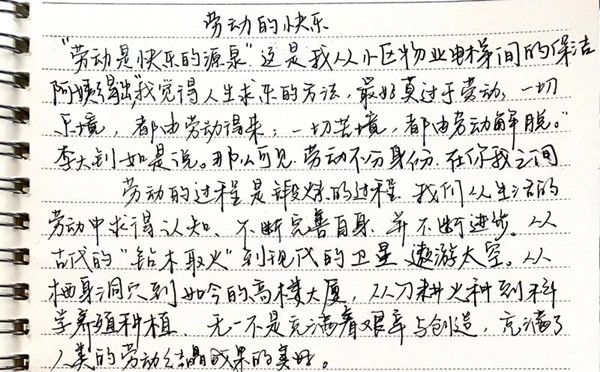 劳动的快乐
"劳动是快乐的源泉"这是我从小区物业电梯间的保洁
阿姨得出,"我觉得人生求乐的方法,最好莫过于劳动,一切
乐境,都由劳动得来;一切苦境,都由劳动解脱。"
李大钊如是说。那么可见劳动不分身份,在你我之间
劳动的过程是锻炼的过程,我们从生活的
劳动中求得认知、不断完善自身、并不断进步。从
古代的"钻木取火"到现代的卫星遨游太空。从
栖身洞穴到如今的高楼大厦,从刀耕火种到科
学养殖种植,无一不是充满着艰辛与创造,充满了
人类的劳动结晶成果的美好。